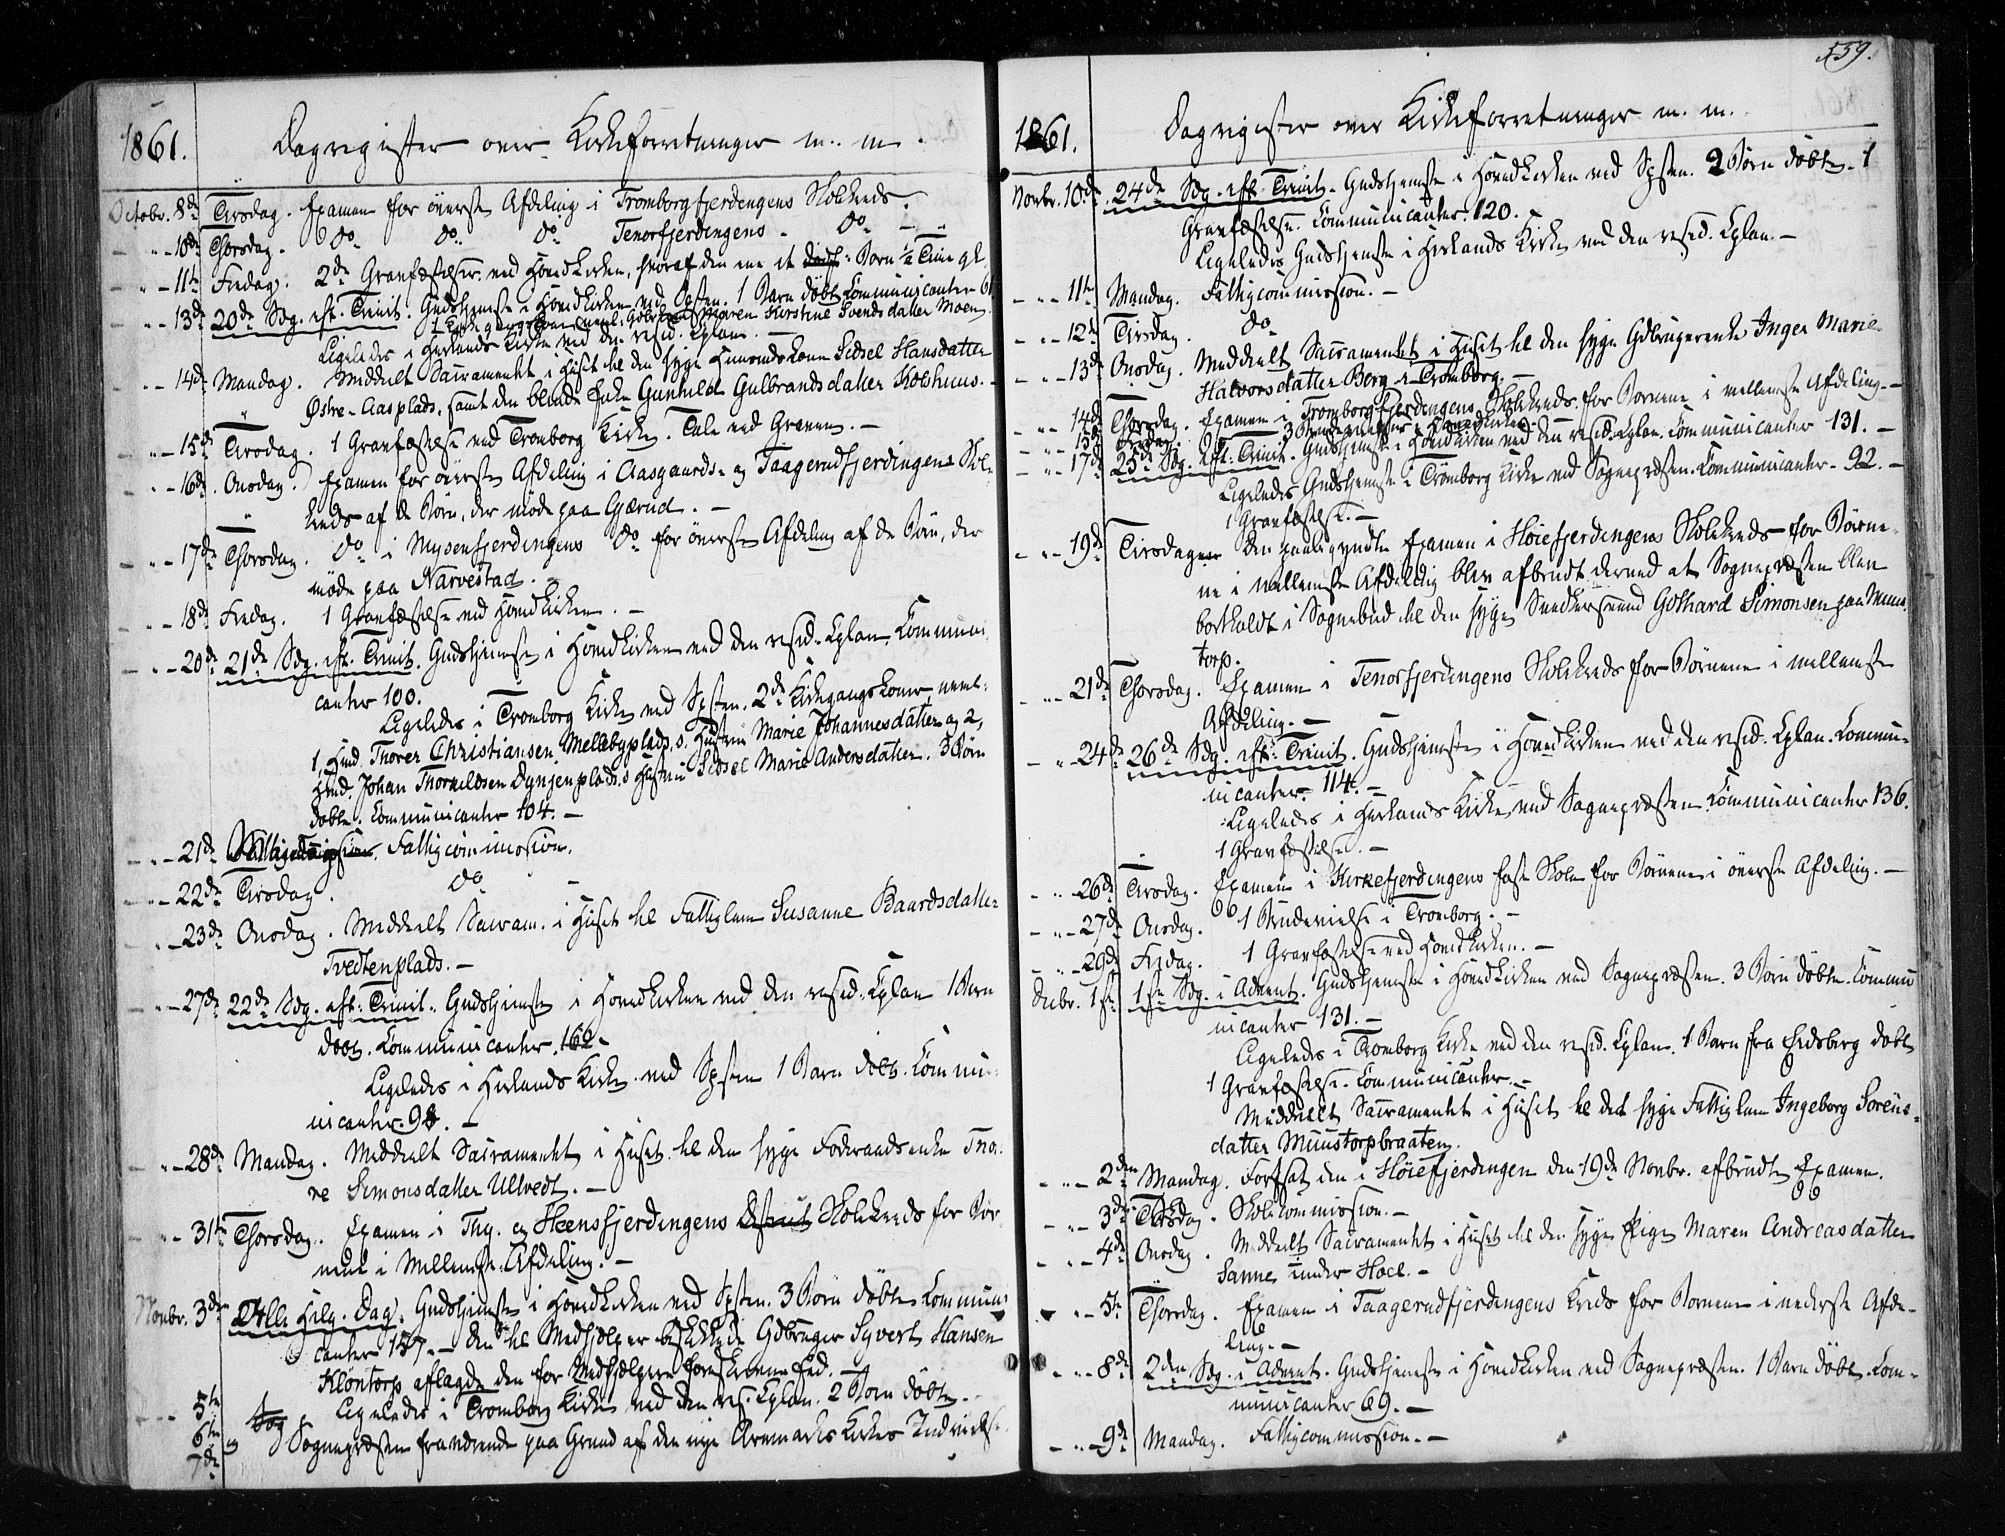 1861. Dagregister over Kirkeforretninger m. m.
Octobr. 8de Tirsdag. Examen for øverste Afdeling i Tromborgfjerdingens Skolekreds.
" 10de Thorsdag. do do do Tenorfjerdingens do
" 11te Fredag. 2de Gravfæstelser ved Hovedkirken, hvoraf den ene et Barn 1/2 Time gl.
" 13de 20de Sdg. eft. Trinit. Gudstjeneste i Hovedkirken ved Spsten. 1 Barn døbt. Communicanter
Maren Kirstine Svendsdatter Moen.
Ligeledes i Herlands Kirke ved den resid. Cplan.
" 14de Mandag. Meddeelt Sacramentet i Huset til den syge Huusmandskone Sidsel Hansdatter
Østre-Aasplads, samt den blinde Enke Gunhild Gulbrandsdatter Kolshuus.
" 15de Tirsdag. 1 Gravfæstelse ved Tromborg Kirke. Tale ved Graven.
" 16de Onsdag. Examen for øverste Afdeling i Aasgaards- og Taagerudfjerdingens Skole-
kreds af de Børn, der møde paa Gjærud.
" 17de Thorsdag. do i Mysenfjerdingens do for øverste Afdeling af de Børn, der
møde paa Narvestad.
" 18de Fredag. 1 Gravfæstelse ved Hovedkirken.
" 20de 21de Sdg. eft. Trinit. Gudstjeneste i Hovedkirken ved den resid. Cplan. Communi
canter 100.
Ligeledes i Tromborg Kirke ved Spsten. 2de Kirkegangskoner neml.
1, Hmd. Thorer Christiansen Mellebyplads's Hustru Marie Johannesdatter og 2,
Hmd. Johan Thorkildsen Dynjenplads's Hustru Sidsel Marie Andersdatter. 3 Børn
døbte. Communicanter 104.
" 21de Mandag. Fattigcommission.
" 22de Tirsdag. do
" 23de Onsdag. Meddeelt Sacram. i Huset til Fattiglem Susanne Baardsdatter
Tvedtenplads.
" 27de 22de Sdg. eft. Trinit. Gudstjeneste i Hovedkirken ved den resid. Cplan 1 Barn
døbt. Communicanter 162.
Ligeledes i Herlands Kirke ved Spsten 1 Barn døbt. Commu-
nicanter
" 28de Mandag. Meddeelt Sacramentet i Huset til den syge Føderaadsenke Tho-
re Simonsdatter Ullvedt.
" 31te Thorsdag. Examen i Thy. og Heensfjerdingens Skolekreds for Bør
nene i Mellemste Afdeling.
Novbr. 3de Alle Helg. Dag. Gudstjeneste i Hovedkirken ved Spsten. 3 Børn døbte Communi
canter 157. Den til Medhjelper beskikkede Gdbruger Syvert Hansen
Kløntorp aflagde den for Medhjelpere foreskrevne Eed.
Ligeledes i Tromborg Kirke ved den res. Cplan. 2 Børn døbte.
5te 6te og 7de Sognepræsten fraværende paa Grund af den nye Aremarks Kirkes Indvielse.
559.
1861. Dagregister over Kirkeforretninger m. m.
Novbr. 10de 24de Sdg. eft. Trinit. Gudstjeneste i Hovedkirken ved Spsten. 2 Børn døbte. 1
Gravfæstelse. Communicanter 120.
Ligeledes Gudstjeneste i Herlands Kirke ved den resid. Cplan.
" 11te Mandag. Fattigcommission.
" 12te Tirsdag. do
" 13de Onsdag. Meddeelt Sacramentet i Huset til den syge Gdbrugerenke Inger Marie
Halvorsdatter Berg i Tromborg.
" 14de Thorsdag. Examen i Tromborgfjerdingens Skolekreds for Børnene i mellemste Afdeling.
" 15de Fredag. 3 Brudevielser i Hovedkirken.
" 17de 25de Sdg. eft. Trinit. Gudstjeneste i Hovedkirken ved den resid. Cplan. Communicanter 131.
Ligeledes Gudstjeneste i Tromborg Kirke ved Sognepræsten. Communicanter 92.
1 Gravfæstelse.
" 19de Tirsdag Den paabegyndte Examen i Høiefjerdingens Skolekreds for Børne-
ne i mellemste Afdeling blev afbrudt derved at Sognepræsten blev
bortkaldt i Sognebud til den syge Snedkersvend Gothard Simonsen paa Muus-
torp.
" 21de Thorsdag. Examen i Tenorfjerdingens Skolekreds for Børnene i mellemste
Afdeling.
" 24de 26de Sdg. eft. Trinit. Gudstjeneste i Hovedkirken ved den resid. Cplan. Commu-
nicanter 114.
Ligeledes i Herlands Kirke ved Sognepræsten Communicanter 136.
1 Gravfæstelse.
" 26de Tirsdag. Examen i Kirkefjerdingens faste Skole for Børnene i øverste Afdeling.
" 27de Onsdag. 1 Brudevielse i Tromborg.
" 29de Fredag. 1 Gravfæstelse ved Hovedkirken.
Decbr. 1ste 1ste Sdg. i Advent. Gudstjeneste i Hovedkirken ved Sognepræsten. 3 Børn døbte. Commu
nicanter 131.
Ligeledes i Tromborg Kirke ved den resid. Cplan. 1 Barn fra Eidsberg døbt
1 Gravfæstelse. Communicanter.
Meddeelt Sacramentet i Huset til det syge Fattiglem Ingeborg Sørens-
datter Muustorpbraaten.
" 2den Mandag. Fortsat den i Høiefjerdingen den 19de Novbr. afbrudte Examen.
" 3die Tirsdag. Skolecommission.
" 4de Onsdag. Meddeelt Sacramentet i Huset til den syge Pige Maren Andreasdatter
Sanne under Hoel.
" 5te Thorsdag. Examen i Taagerudfjerdingens Kreds for Børnene i nederste Afde-
ling.
" 8de 2den Sdg. i Advent. Gudstjeneste i Hovedkirken ved Sognepræsten. 1 Barn døbt. Com-
municanter 69.
" 9de Mandag. Fattigcommission.